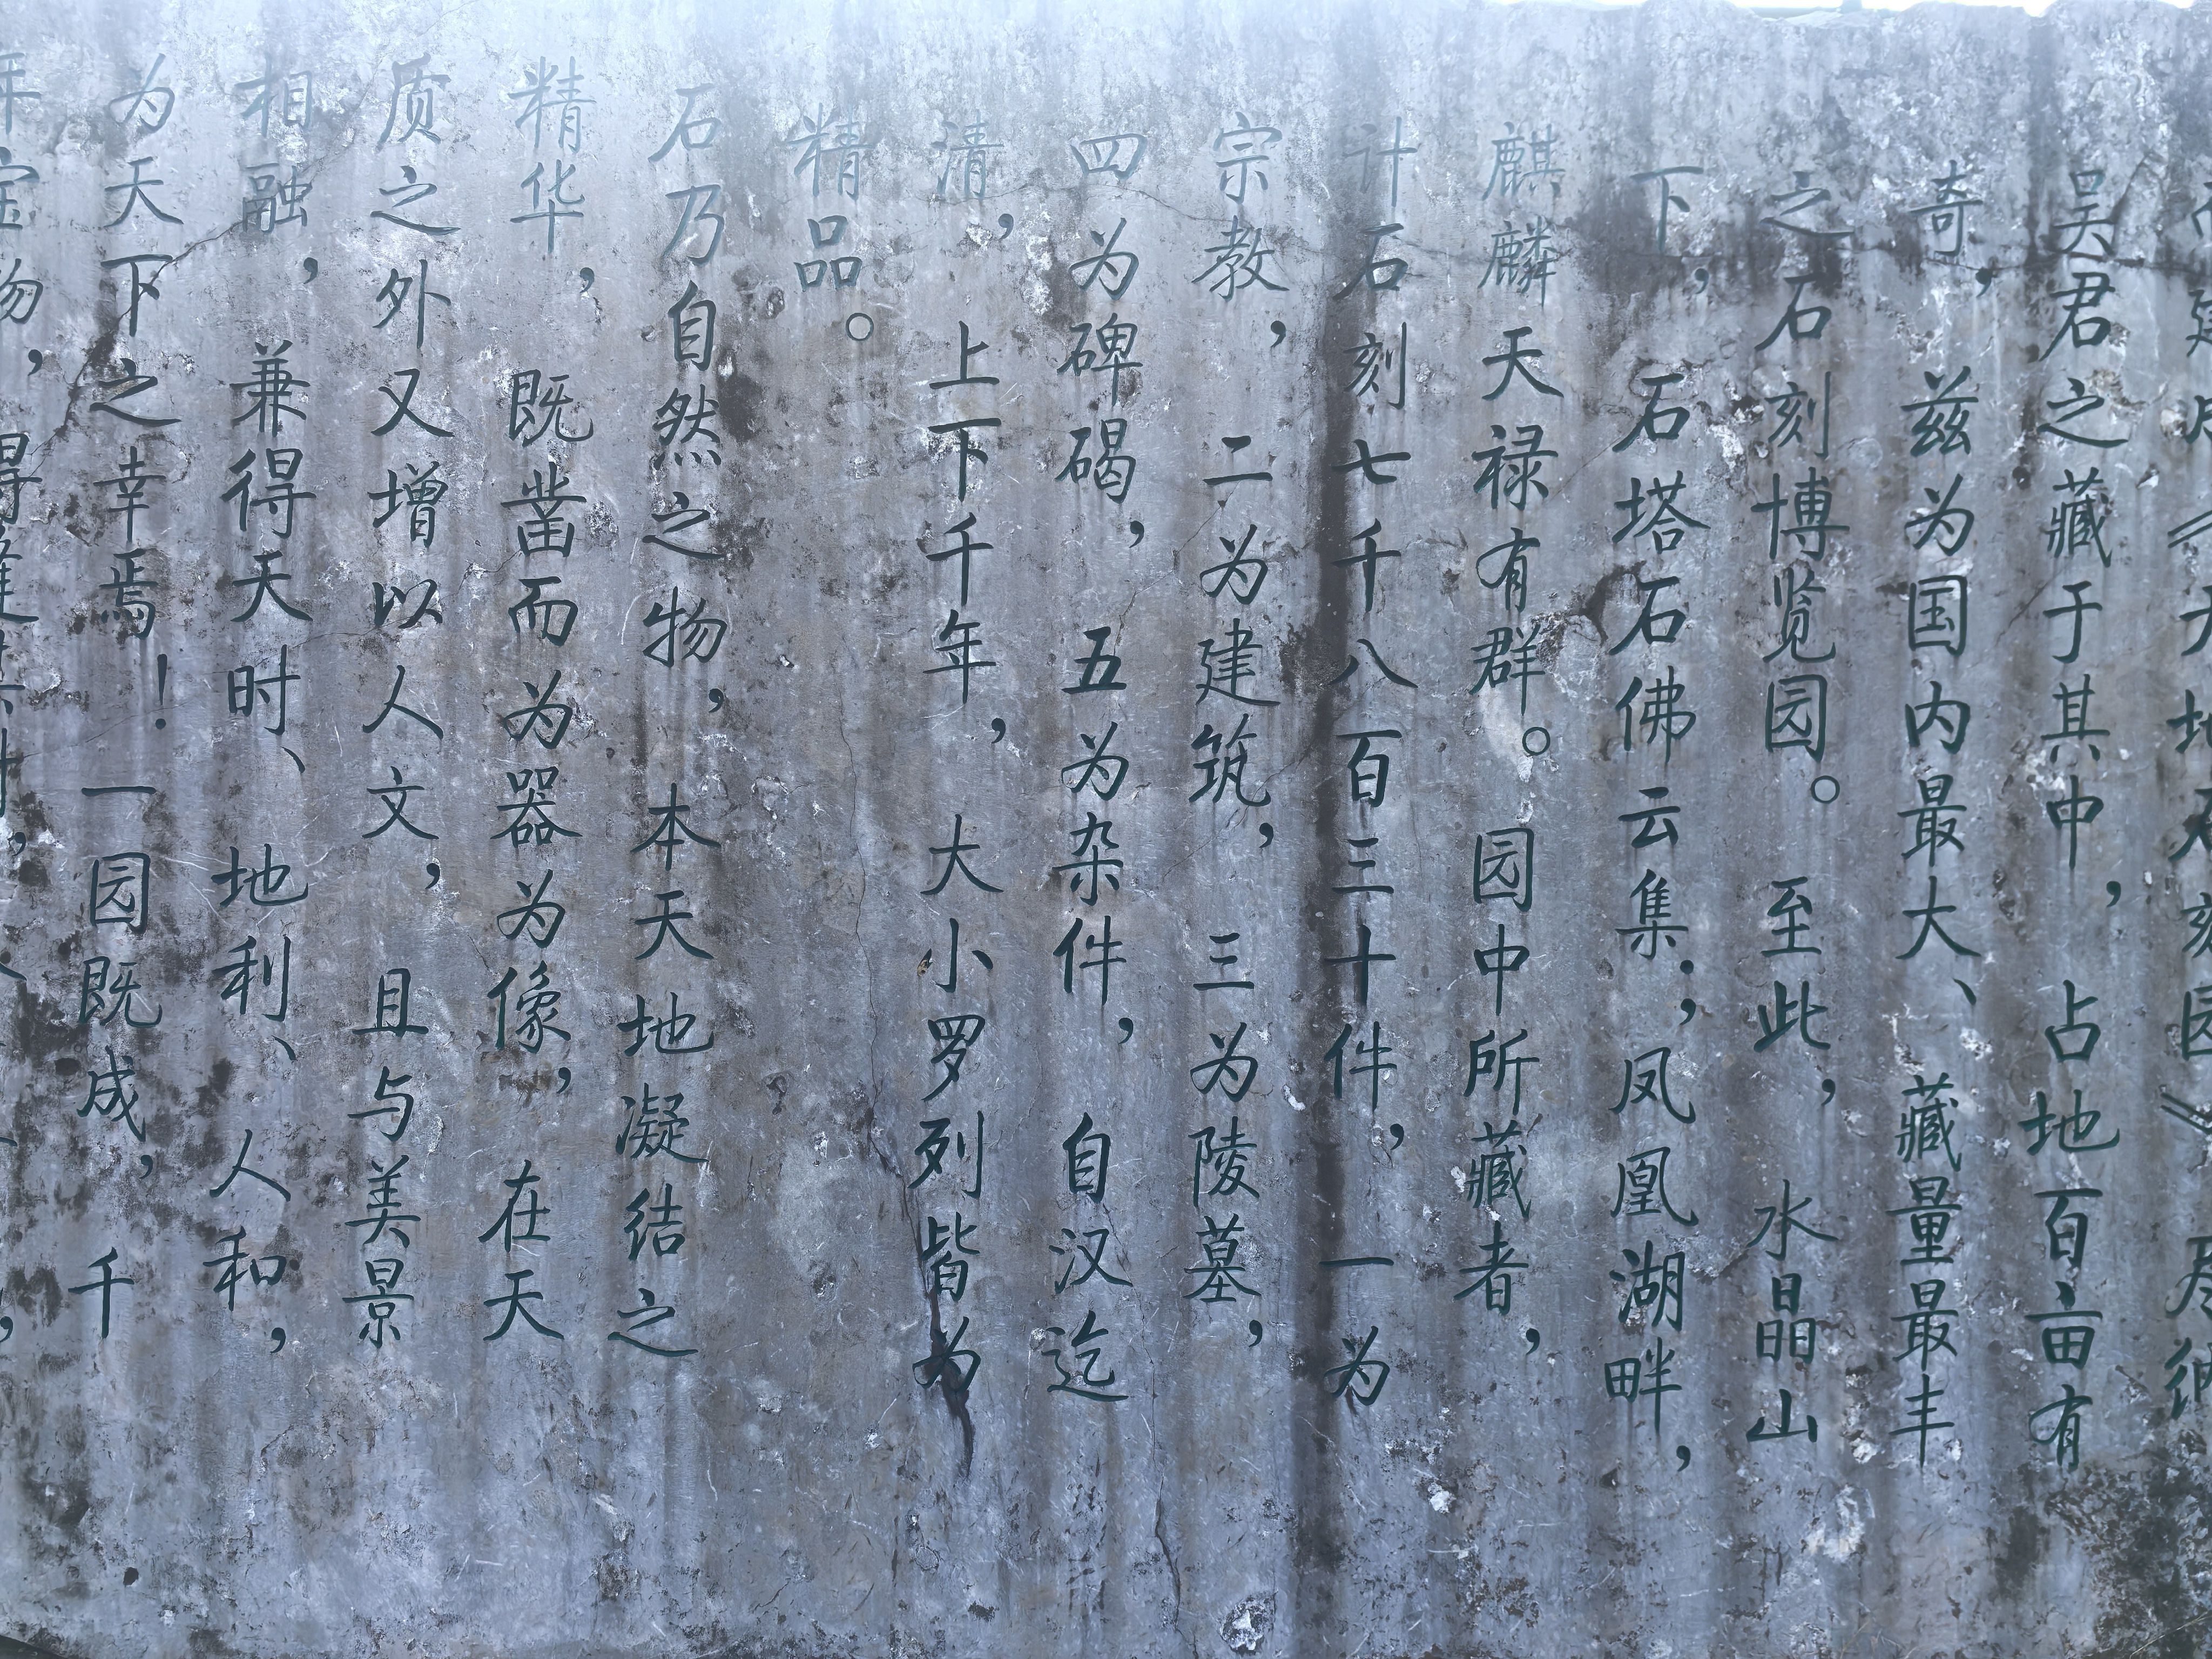 吴君之藏于其中，占地百亩有
奇，兹为国内最大、藏量最丰
之石刻博览园。至此，水晶山
下，石塔石佛云集；凤凰湖畔，
麒麟天禄有群。园中所藏者，
计石刻七千八百三十件，一为
宗教，二为建筑，三为陵墓，
四为碑碣，五为杂件，自汉迄
清，上下千年，大小罗列皆为
精品。
石乃自然之物，本天地凝结之
精华，既凿而为器为像，在天
质之外又增以人文，且与美景
相融，兼得天时、地利、人和，
为天下之幸焉！一园既成，千